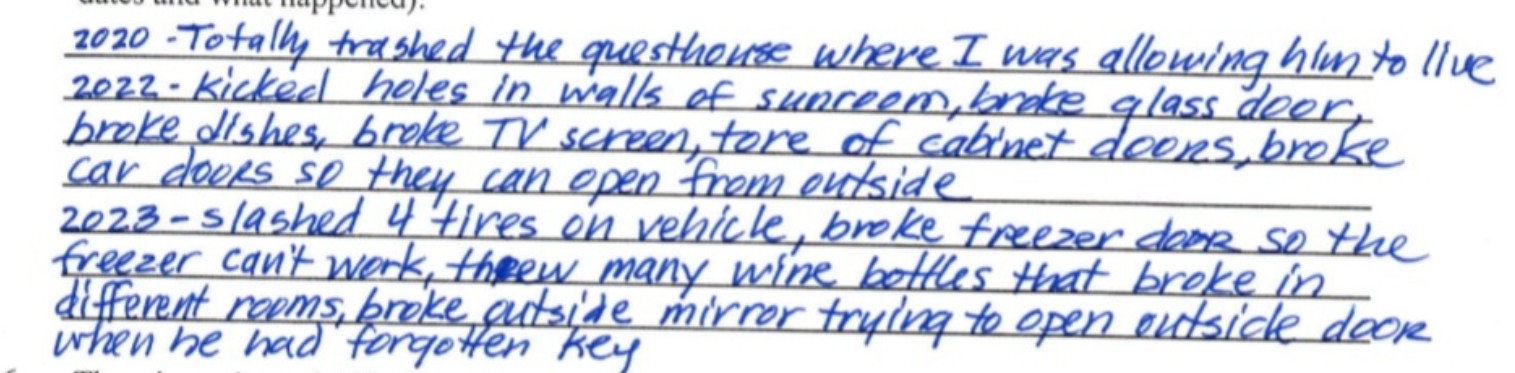 dates and what happened):
2020 - Totally trashed the guesthouse where I was allowing him to live
2022 - Kicked holes in walls of sunroom, broke glass door,
broke dishes, broke TV screen, tore of cabinet doors, broke
car doors so they can open from outside
2023 - slashed 4 tires on vehicle, broke freezer door so the
freezer can't work, threw many wine bottles that broke in
different rooms, broke outside mirror trying to open outside door
when he had forgotten key